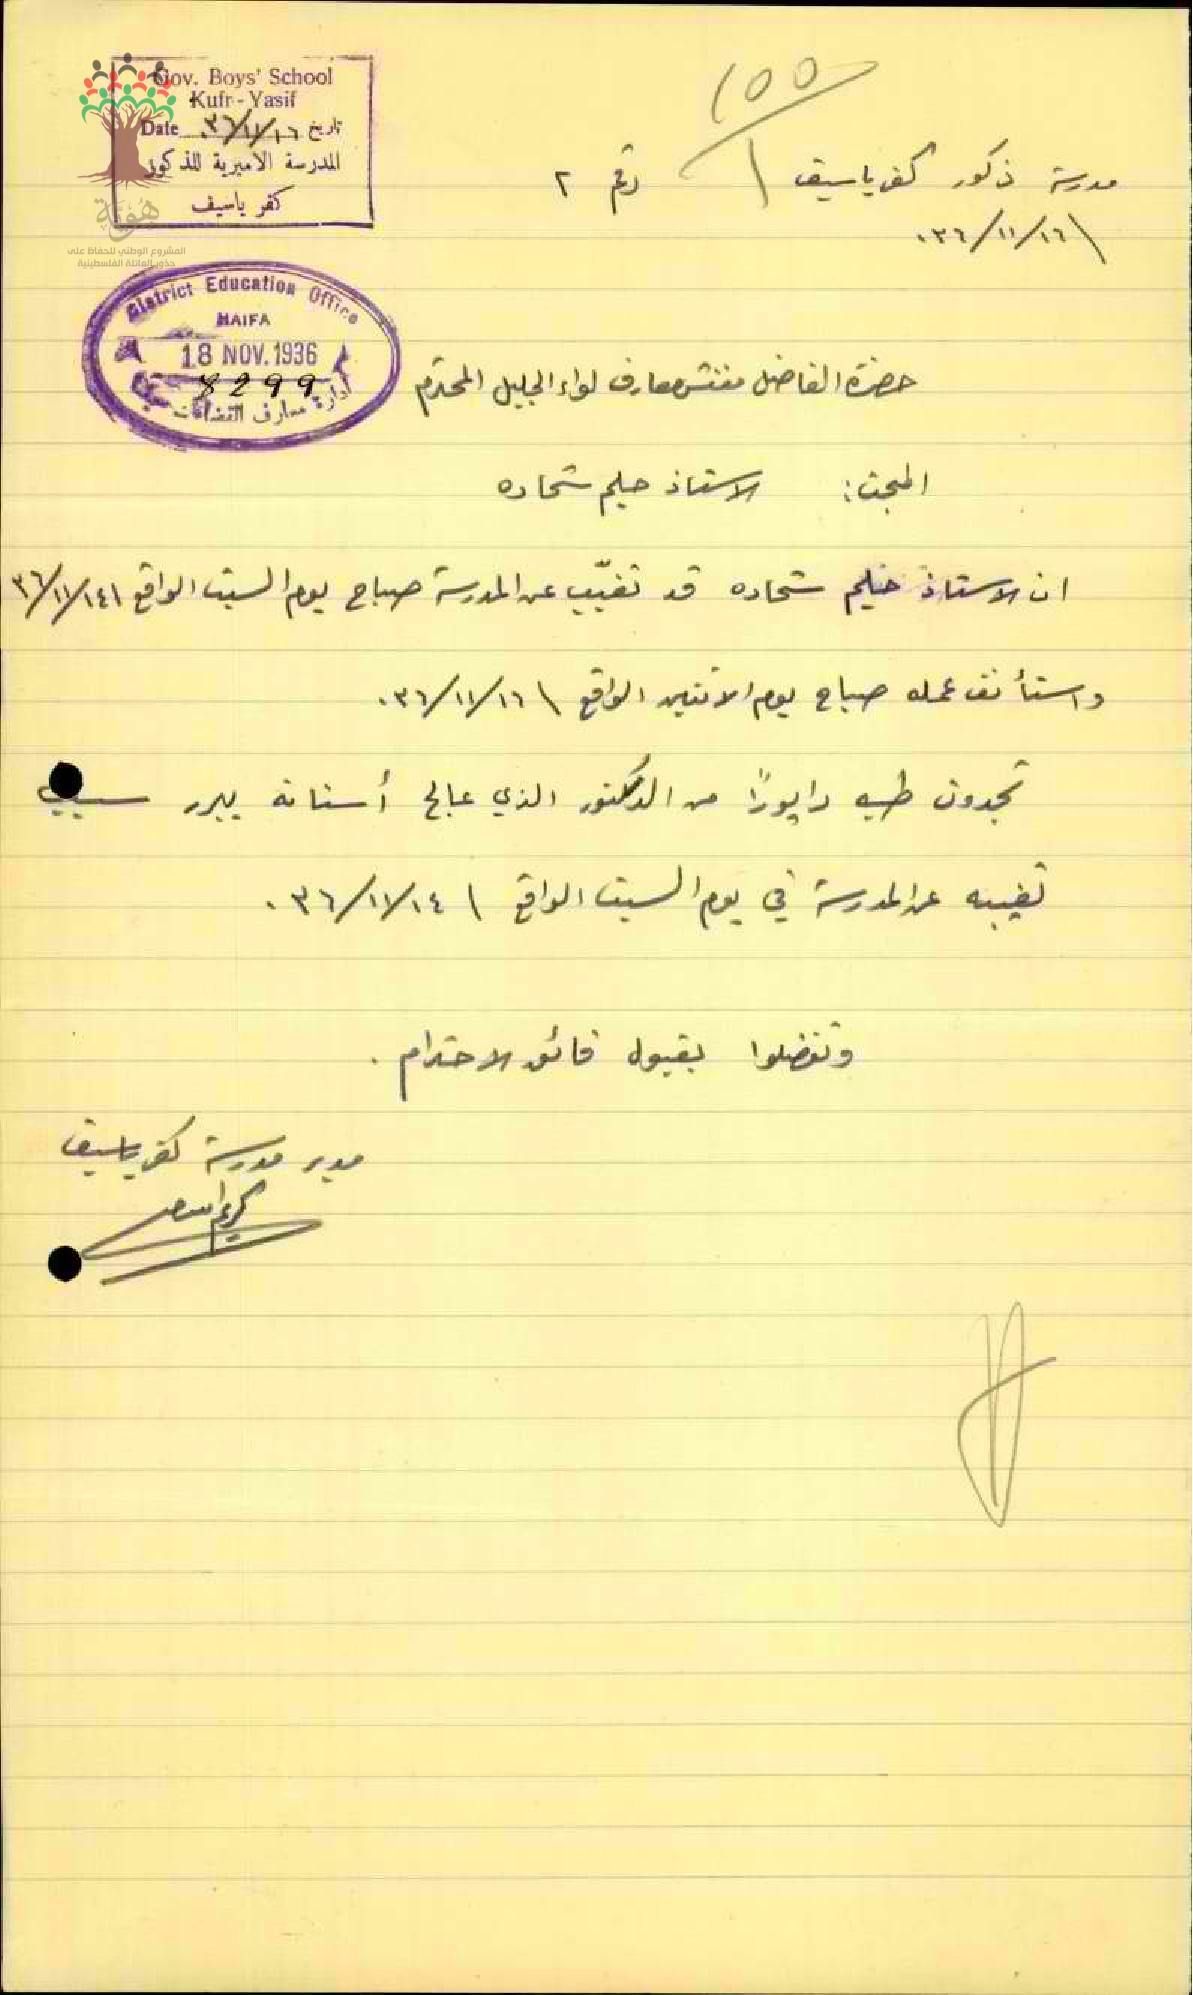 Gov. Boys' School
Kufr-Yasif
Date ٣٦/١١/١٦ تاريخ
المدرسة الاميرية للذكور
كفر ياسيف
هُوِيَّة
المشروع الوطني للحفاظ على
جذور العائلة الفلسطينية
100
مدرسة ذكور كفر ياسيف \ رقم ٢
\ ٣٦/١١/١٦.
District Education Office
HAIFA
18 NOV. 1936
8299
ادارة معارف
حضرة الفاضل مفتش معارف لواء الجليل المحترم
المبحث: الاستاذ حليم شحاده
ان الاستاذ حليم شحاده قد تغيّب عن المدرسة صباح يوم السبت الواقع \ ٣٦/١١/١٤
واستأنف عمله صباح يوم الاثنين الواقع \ ٣٦/١١/١٦.
تجدون طيه راپورًا من الدكتور الذي عالج أسنانه يبرر سبب
تغيبه عن المدرسة في يوم السبت الواقع \ ٣٦/١١/١٤.
وتفضلوا بقبول فائق الاحترام.
مدير مدرسة كفر ياسيف